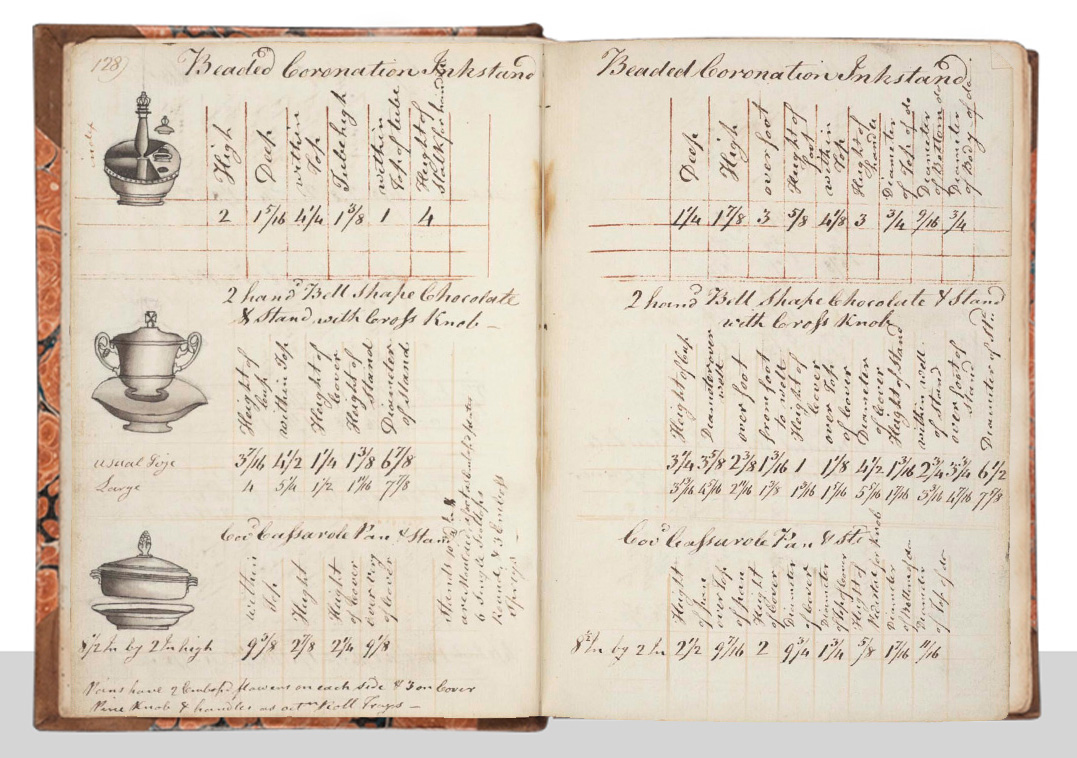 128
Beaded Coronation Inkstand
index
High
Deep
within Top
Tube high
within Top of tube
Height of Stalk for handle
2 1 5/16 4 1/4 1 3/8 1 4
2 hand Bell shape Chocolate
& Stand with Cross Knob –
Height of Cup
within Top
Height of Cover
Height of Stand
Diameter of Stand
usual Size 3 7/16 4 1/2 1 1/4 1 3/8 6 7/8
Large 4 5 1/4 1 1/2 1 9/16 7 7/8
Cov'd Cassarole Pan & Stand
within Top
Height
Height of Cover
over rim of Cover
8 1/2 In by 2 In high 9 5/8 2 7/8 2 1/4 9 1/8
Pans have 2 Embossd flowers on each side & 3 on Cover
Pine Knob & handles as Roll Trays –
Beaded Coronation Inkstand
Deep
High
over foot
Height of foot
within Top
Height of Handle
Diameter of Top of do
Diameter of Bottom do
Diameter of Body of do
1 1/4 1 7/8 3 5/8 4 1/8 3 3/4 9/16 3/4
2 hand Bell shape Chocolate & Stand
with Cross Knob
Height of Cup
Diameter over well
over foot
from foot to well
Height of Cover
over Top of Cover
Diameter of Cover
Height of Stand
within well of Stand
over foot of Stand
Diameter of Stand
3 1/4 3 5/8 2 3/8 1 3/16 1 1 1/8 4 1/2 1 3/16 2 3/4 3 3/4 6 1/2
Cov'd Cassarole Pan & St
Height of pan
over top of pan
Height of Cover
Diameter of Cover
Diameter of Top of Cover
Height of Knob
Diameter of Bottom of do
Diameter of Top of do
8 1/2 In by 2 In 2 1/2 9 7/16 2 9 3/4 1 3/4 5/8 1 7/16 11/16